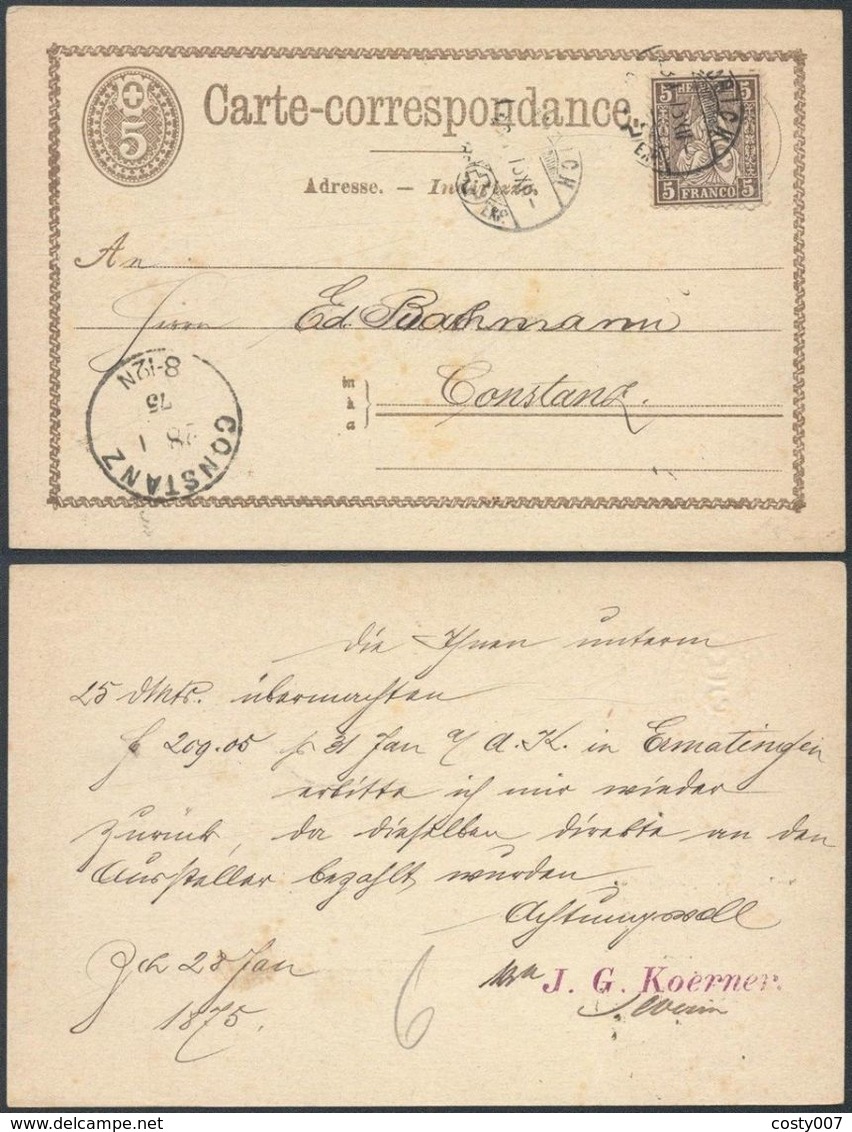 5
Carte-correspondance.
Adresse. — Indirizzo.
5 5
5 FRANCO 5
EXP.
An
Herrn Ed. Bachmann
in
Constanz.
CONSTANZ
28 1
75
8-12N
die Ihnen unterm
25 dMts. übermachten
f 209.05 p 31 Jan a/ A. K. in Ermatingen
erbitte ich mir wieder
zurück, da dieselben direkte an den
Aussteller bezahlt wurden.
Achtungsvoll
Zch 28 Jan
1875.
6
J. G. Koerner.
www.delcampe.net
costy007